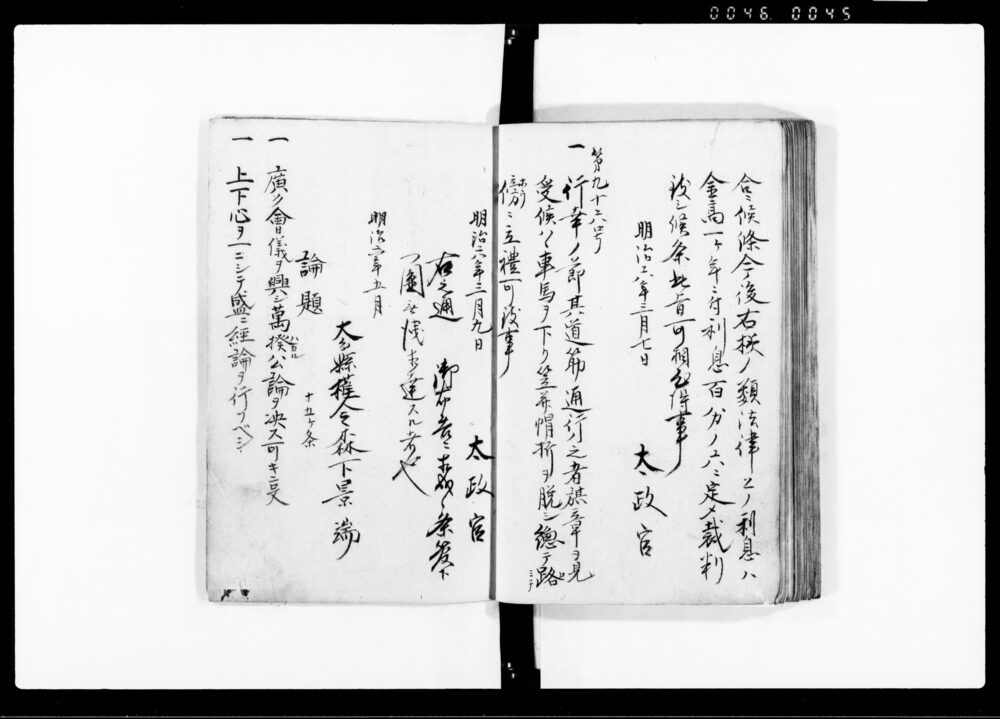 0046. 0045
合候條今後右様ノ類法律上ノ利息ハ
金高一ヶ年ニ付利息百分ノ六ニ定メ裁判
致シ候条此旨可相心得事
明治六年三月七日
太政官
第九十六号
一 行幸ノ節其道筋通行之者旗章ヲ見
受候ハヽ車馬ヲ下リ笠并帽折ヲ脱シ總テ路
傍ニ立禮可致事
明治六年三月九日
太政官
右之通 御布告ニ 条管下
一圓無洩 達スル者也
明治六年五月
縣權令森下景端
論題
十五ヶ条
一 廣ク會儀ヲ興シ萬揆公論ヲ决ス可キ事
一 上下心ヲ一ニシテ盛ニ經論ヲ行フベシ